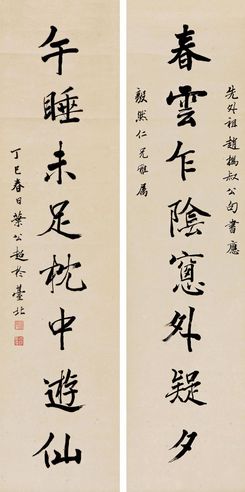 先外祖趙撝叔公句書應
春雲乍陰窻外疑夕
毅然仁兄雅属
午睡未足枕中遊仙
丁巳春日葉公超於臺北